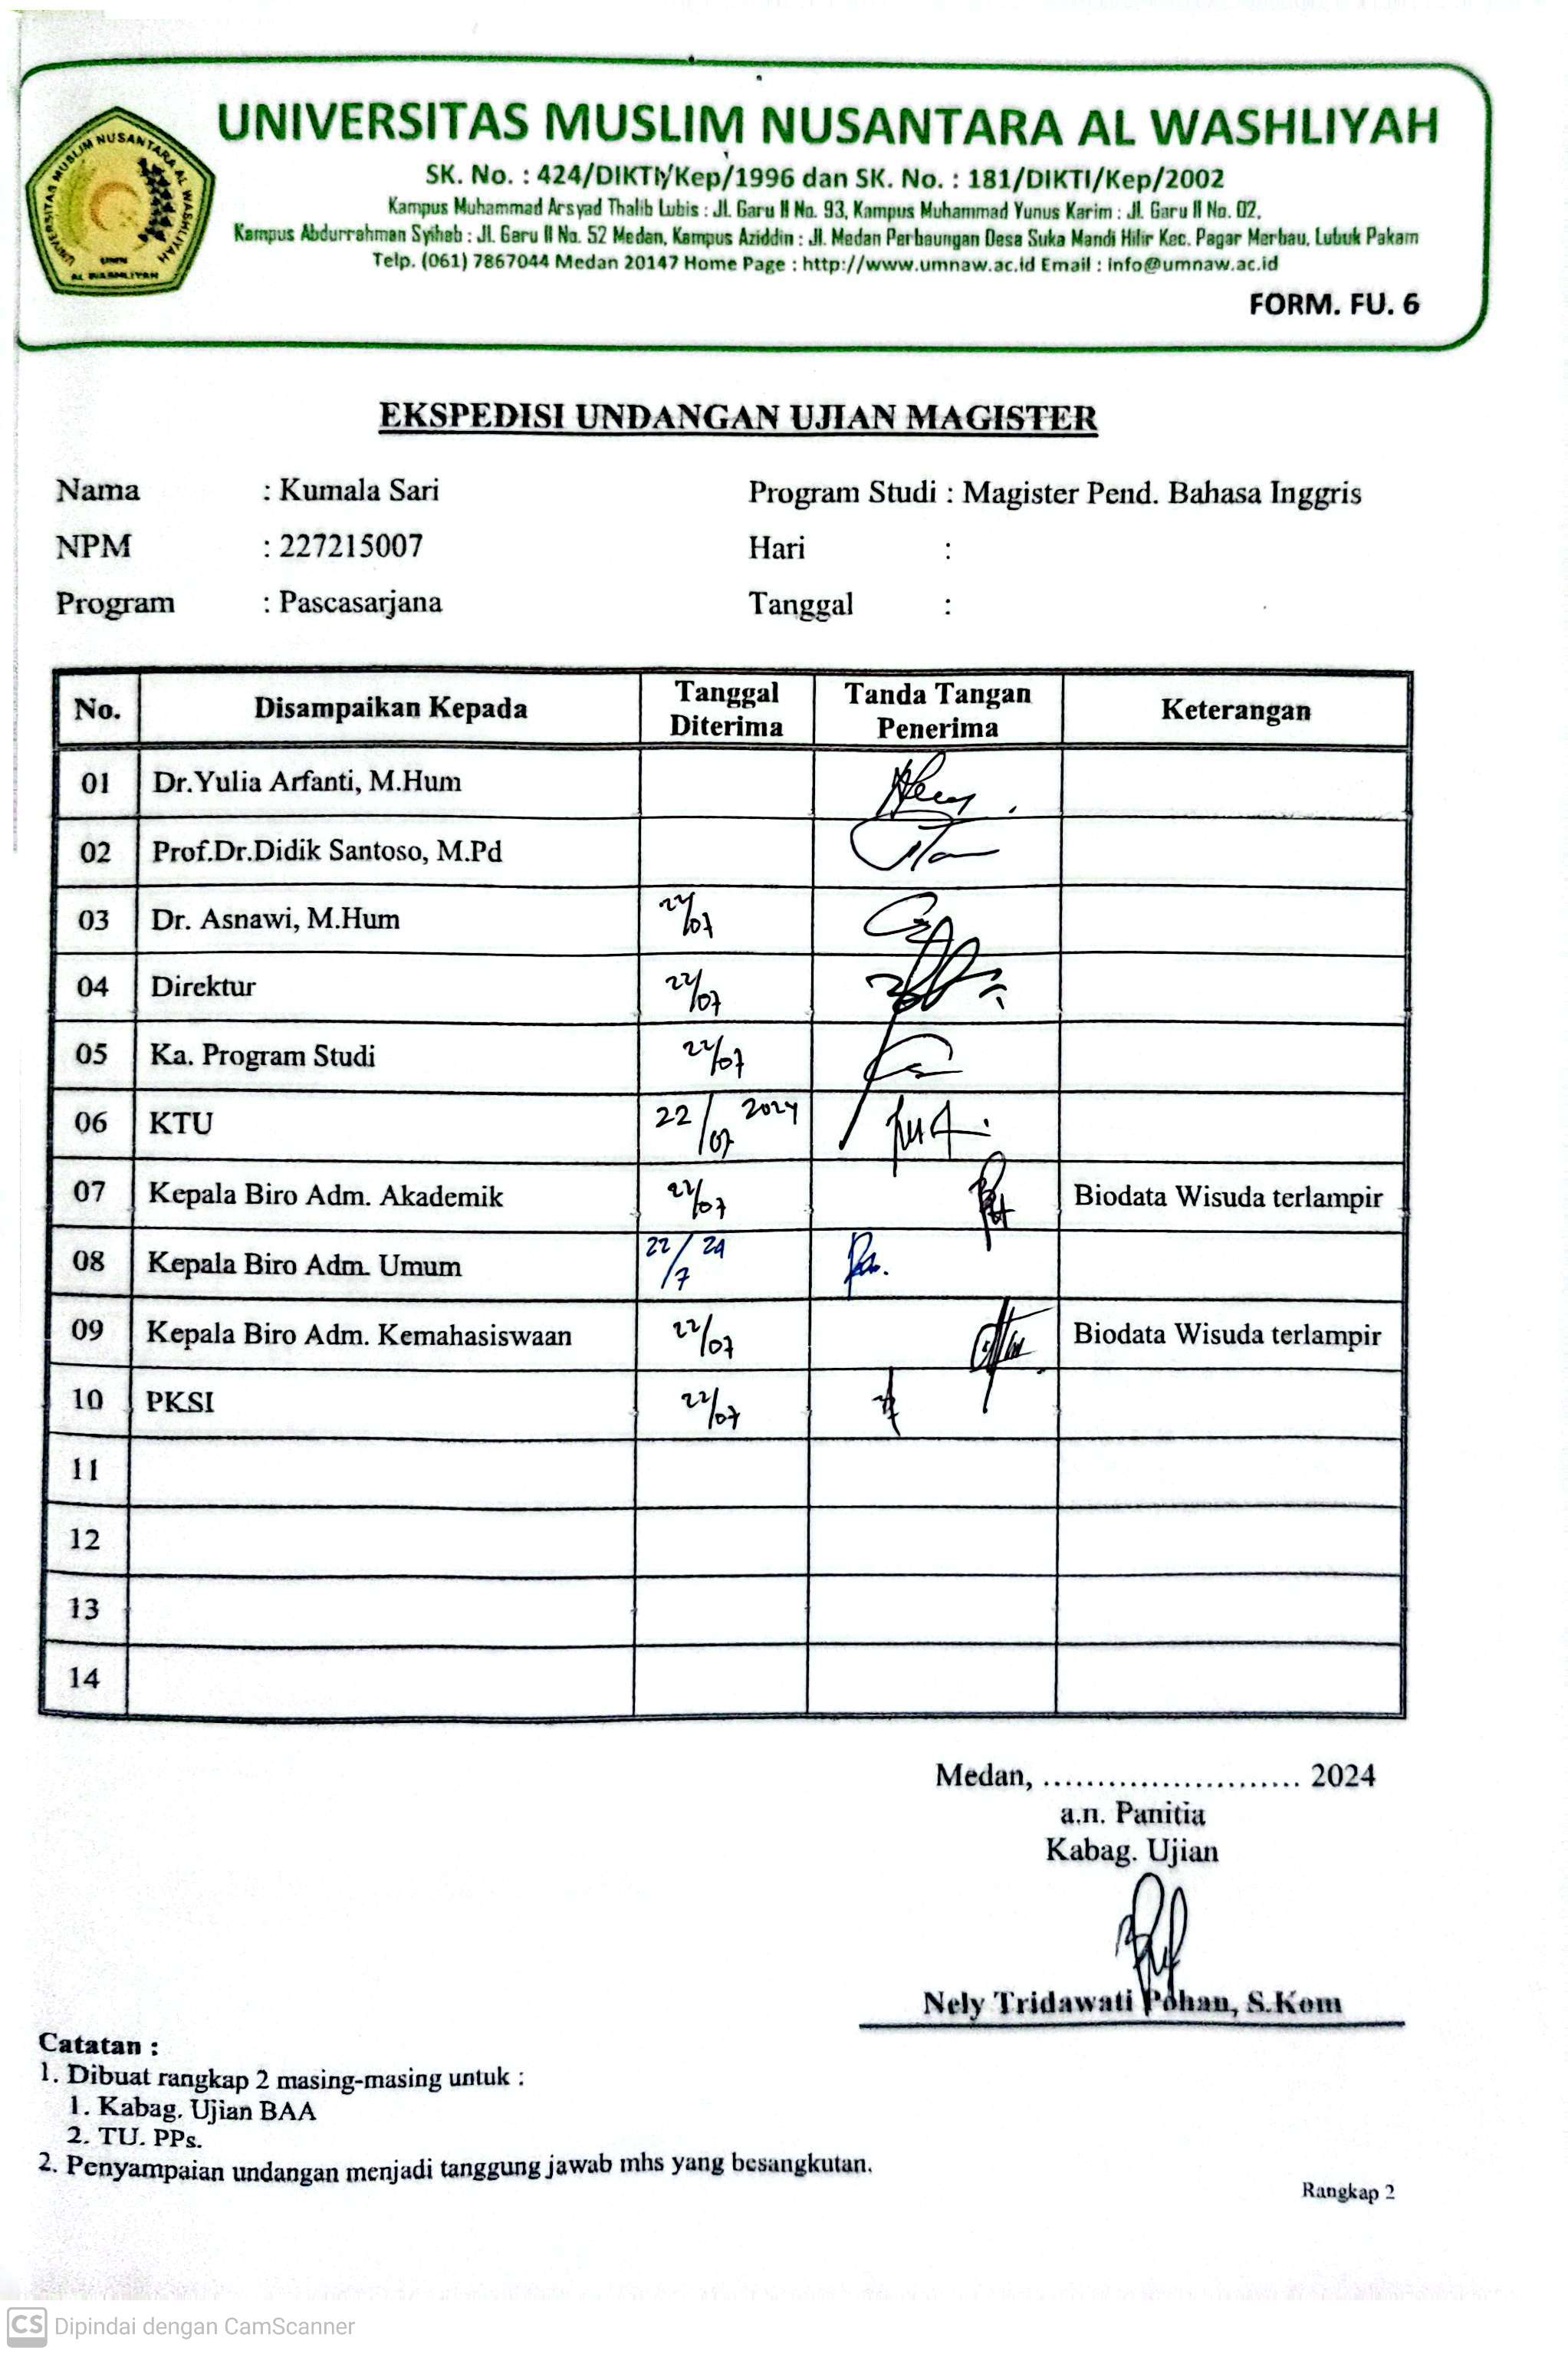 UNIVERSITAS MUSLIM NUSANTARA AL WASHLIYAH
UMN
AL WASHLIYAH
UNIVERSITAS MUSLIM NUSANTARA AL WASHLIYAH
SK. No. : 424/DIKTI/Kep/1996 dan SK. No. : 181/DIKTI/Kep/2002
Kampus Muhammad Arsyad Thalib Lubis : Jl. Garu II No. 93, Kampus Muhammad Yunus Karim : Jl. Garu II No. 02,
Kampus Abdurrahman Syihab : Jl. Garu II No. 52 Medan, Kampus Aziddin : Jl. Medan Perbaungan Desa Suka Mandi Hilir Kec. Pagar Merbau, Lubuk Pakam
Telp. (061) 7867044 Medan 20147 Home Page : http://www.umnaw.ac.id Email : info@umnaw.ac.id
FORM. FU. 6
EKSPEDISI UNDANGAN UJIAN MAGISTER
Nama : Kumala Sari Program Studi : Magister Pend. Bahasa Inggris
NPM : 227215007 Hari :
Program : Pascasarjana Tanggal :
No. Disampaikan Kepada Tanggal Diterima Tanda Tangan Penerima Keterangan
01 Dr.Yulia Arfanti, M.Hum
02 Prof.Dr.Didik Santoso, M.Pd
03 Dr. Asnawi, M.Hum 22/07
04 Direktur 22/07
05 Ka. Program Studi 22/07
06 KTU 22/07 2024
07 Kepala Biro Adm. Akademik 22/07 Biodata Wisuda terlampir
08 Kepala Biro Adm. Umum 22/7 24
09 Kepala Biro Adm. Kemahasiswaan 22/07 Biodata Wisuda terlampir
10 PKSI 22/07
11
12
13
14
Medan, ........................ 2024
a.n. Panitia
Kabag. Ujian
Nely Tridawati Pohan, S.Kom
Catatan :
1. Dibuat rangkap 2 masing-masing untuk :
1. Kabag. Ujian BAA
2. TU. PPs.
2. Penyampaian undangan menjadi tanggung jawab mhs yang besangkutan.
Rangkap 2
CS Dipindai dengan CamScanner